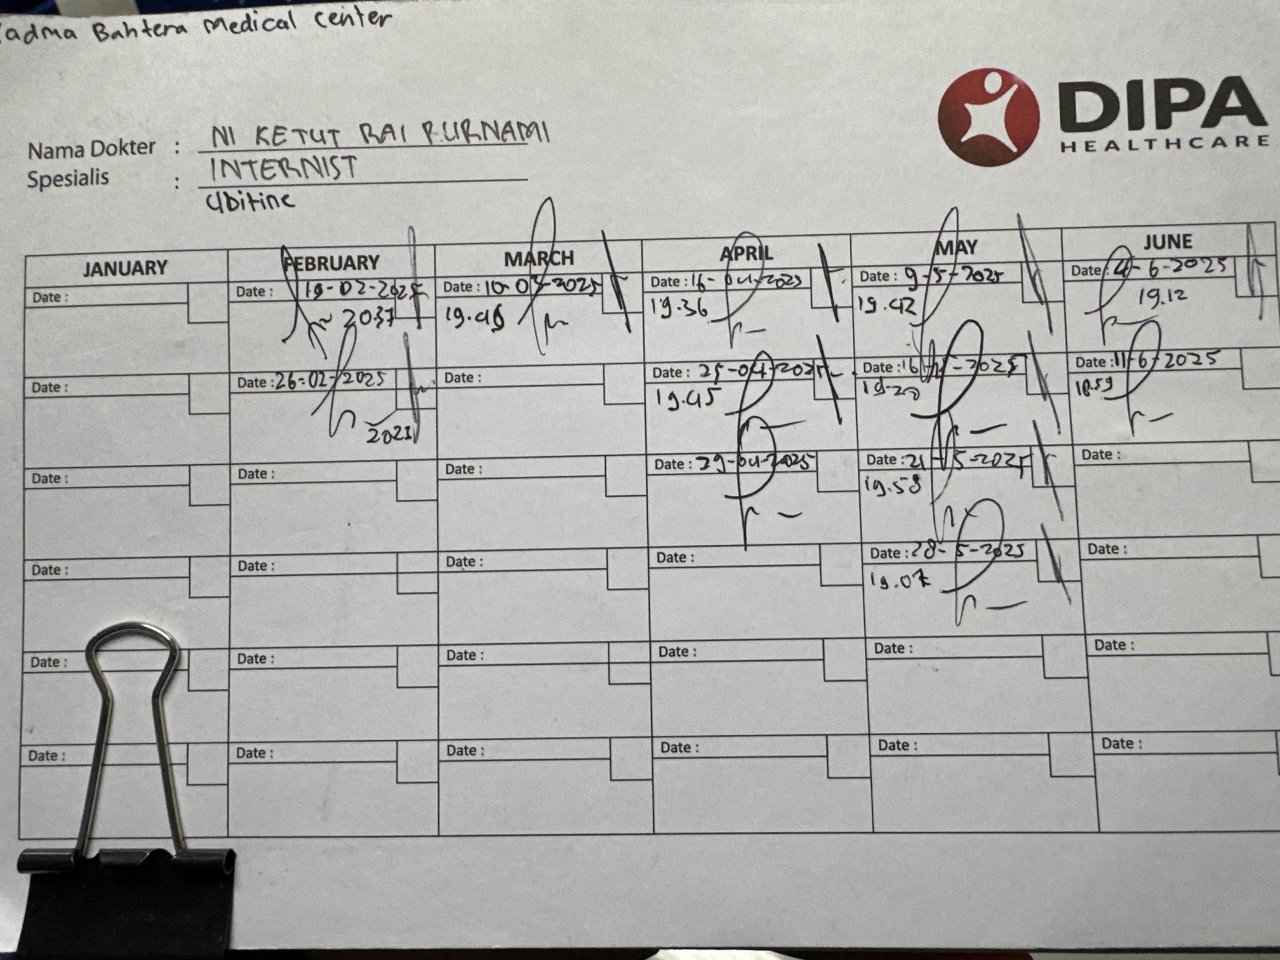 Padma Bahtera Medical Center
DIPA
HEALTHCARE
Nama Dokter : NI KETUT RAI PURNAMI
Spesialis : INTERNIST
Ubitine
JANUARY FEBRUARY MARCH APRIL MAY JUNE
Date : Date : 19-02-2025 Date : 10-03-2025 Date : 16-04-2025 Date : 9-5-2025 Date : 4-6-2025
2037 19.36 19.42 19.12
Date : Date : 26-02-2025 Date : Date : 25-04-2025 Date : 16-5-2025 Date : 11-6-2025
2021 19.45 19-20 18.59
Date : Date : Date : Date : 29-04-2025 Date : 21-5-2025 Date :
19.58
Date : Date : Date : Date : Date : 28-5-2025 Date :
19.07
Date : Date : Date : Date : Date : Date :
Date : Date : Date : Date : Date : Date :